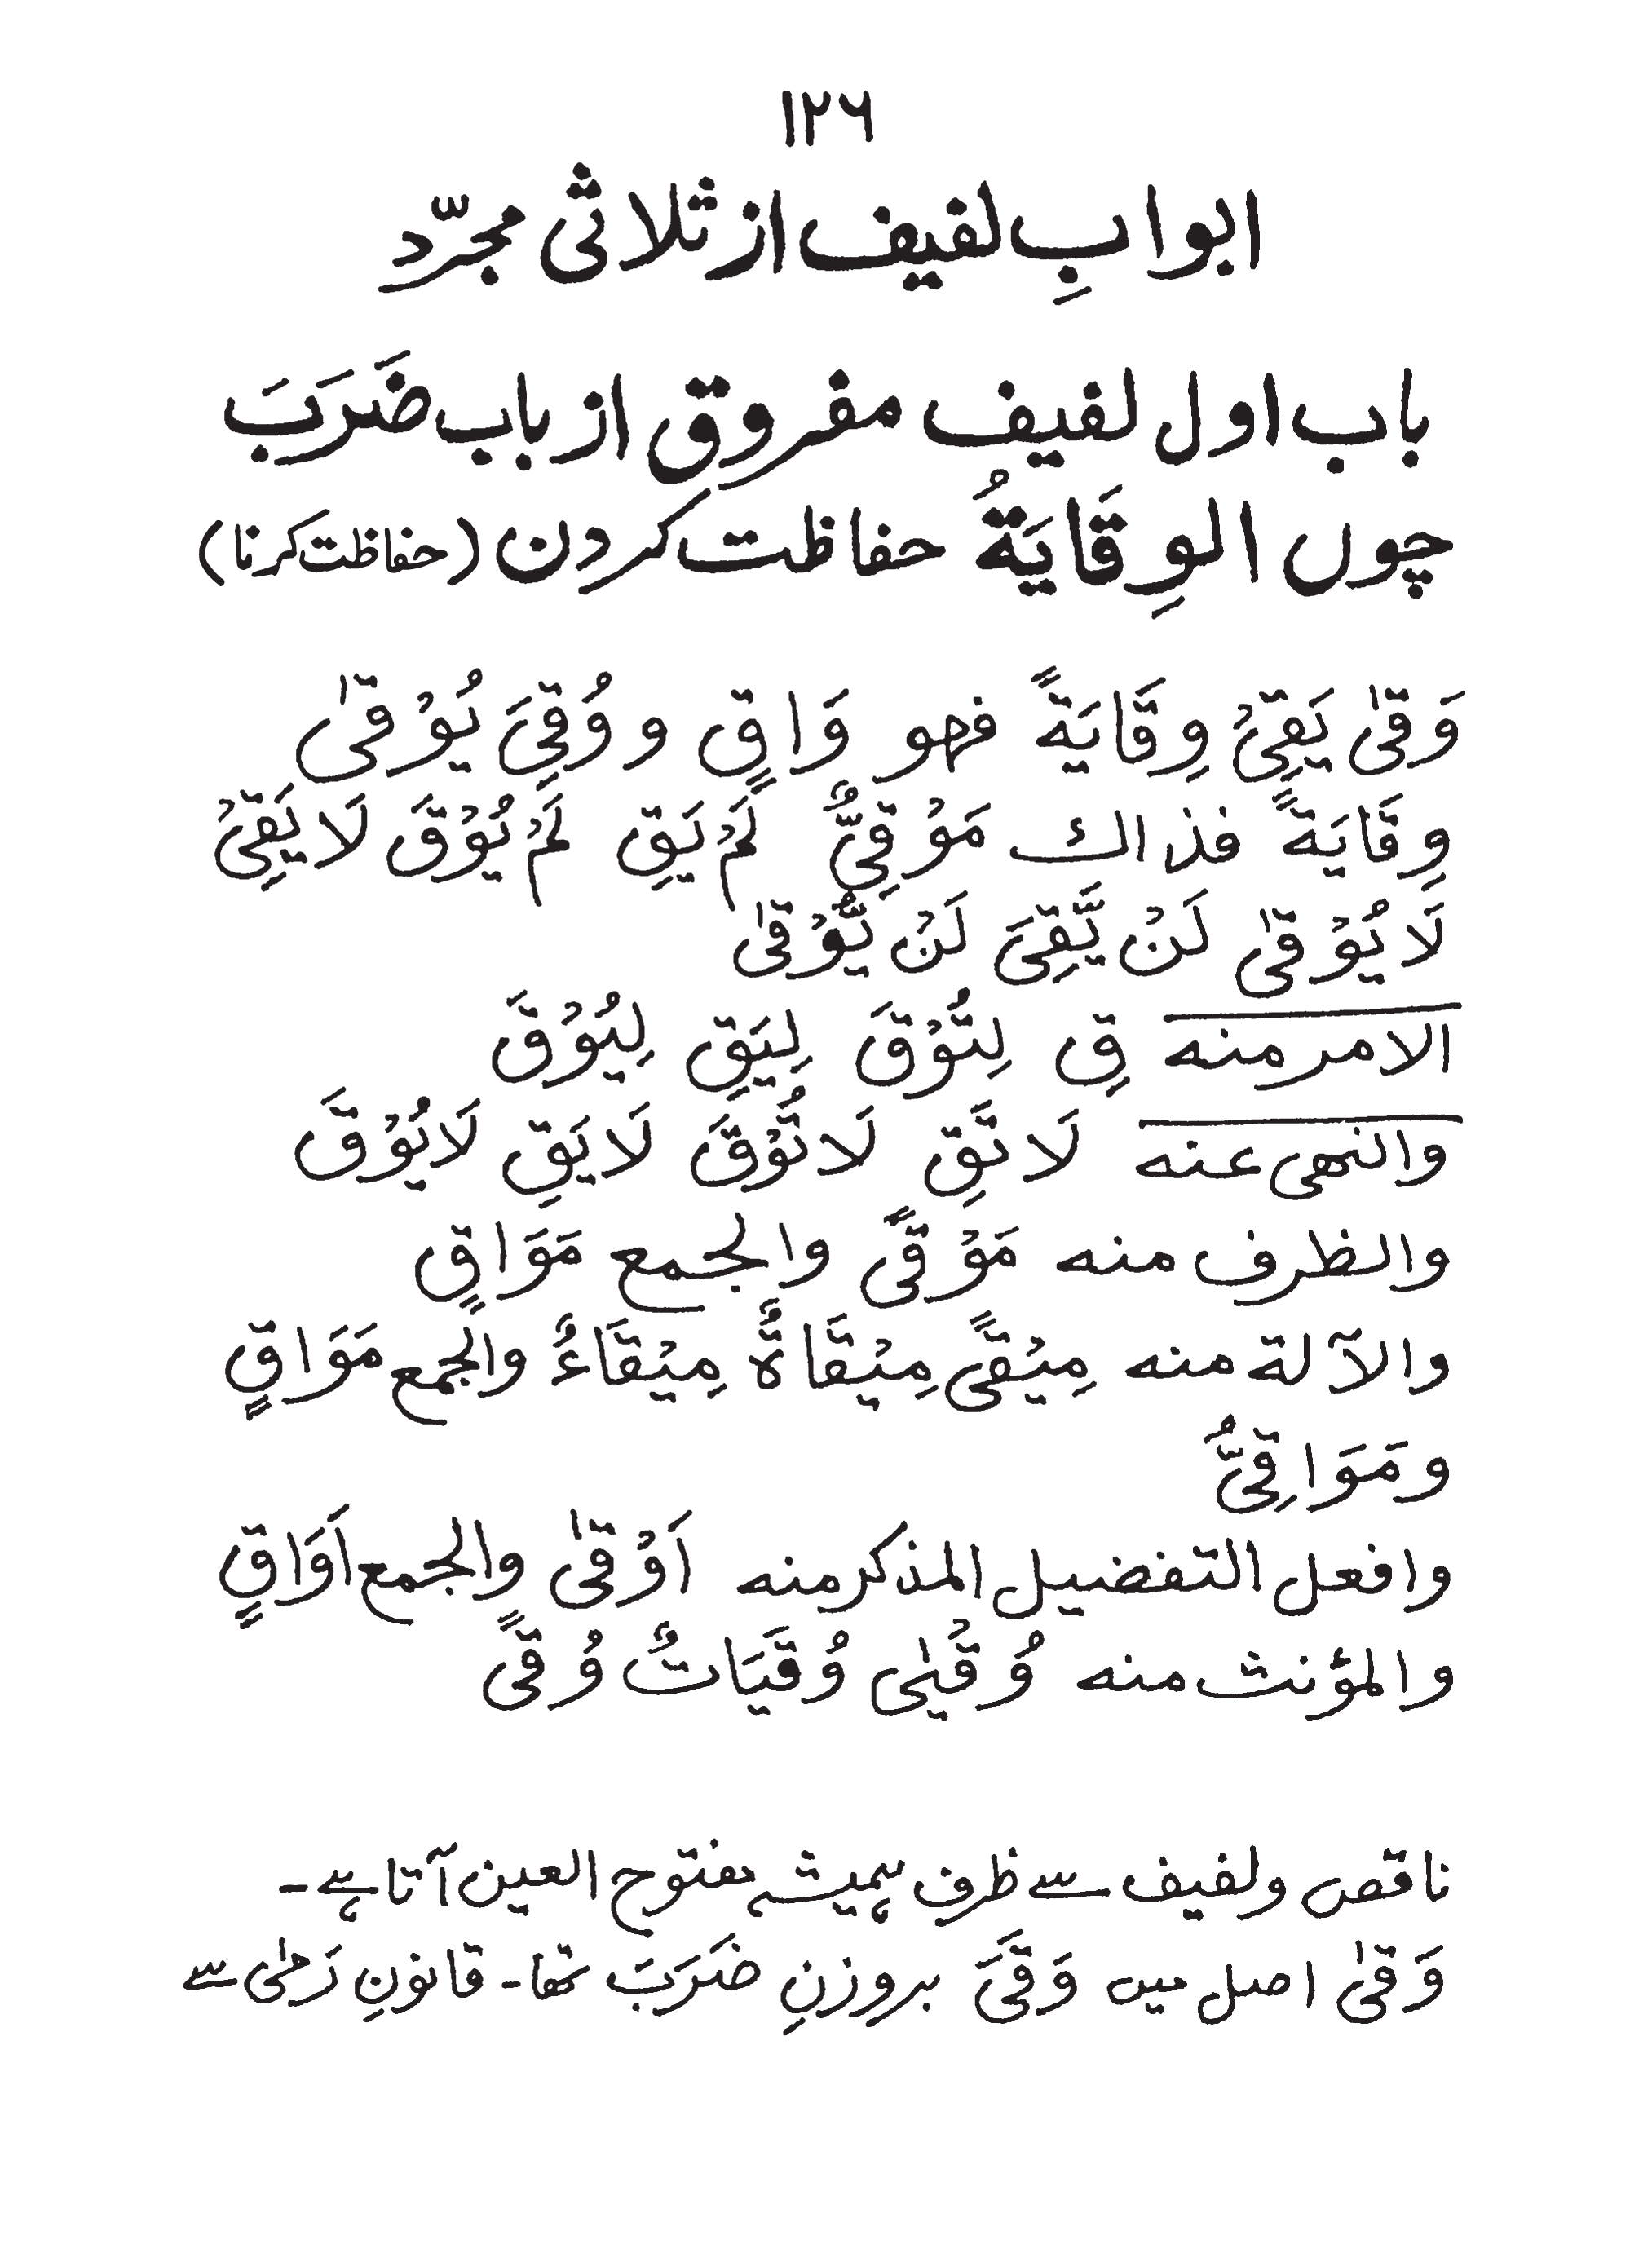 ۱۲۶
ابوابِ لفیف از ثلاثی مجرّد
باب اول لفیف مفروق از باب ضَرَبَ
چوں الوِقَایَةُ حفاظت کردن (حفاظت کرنا)
وَقٰی یَقِیْ وِقَایَةً فھو وَاقٍ و وُقِیَ یُوْقٰی
وِقَایَةً فذاك مَوْقِیٌّ لَمْ یَقِ لَمْ یُوْقَ لَا یَقِیْ
لَا یُوْقٰی لَنْ یَّقِیَ لَنْ یُّوْقٰی
الامر منه قِ لِتُوْقَ لِیَقِ لِیُوْقَ
والنهی عنه لَا تَقِ لَا تُوْقَ لَا یَقِ لَا یُوْقَ
والظرف منه مَوْقًی والجمع مَوَاقٍ
والآلة منه مِیْقًی مِیْقَاةٌ مِیْقَاءٌ والجمع مَوَاقٍ
و مَوَاقِیُّ
وافعل التفضیل المذکر منه اَوْقٰی والجمع اَوَاقٍ
والمؤنث منه وُقْیٰی وُقَیَاتٌ وُقًی
ناقص ولفیف سے ظرف ہمیشہ مفتوح العین آتا ہے ۔
وَقٰی اصل میں وَقَیَ بروزنِ ضَرَبَ تھا ۔ قانونِ رَمٰی سے